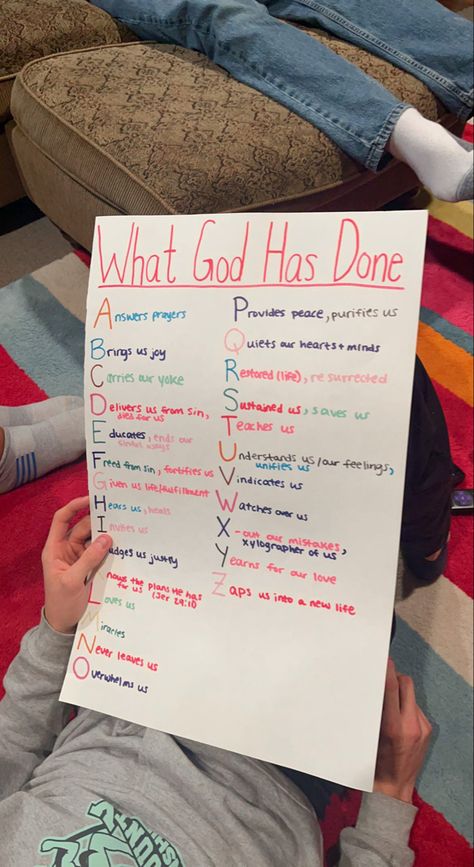 What God Has Done
Answers prayers
Brings us joy
Carries our yoke
Delivers us from sin,
died for us
Educates, ends our
sinful ways
Freed from sin, fortifies us
Given us life/fulfillment
Hears us, heals
Invites us
udges us justly
nows the plans He has
for us (Jer 29:11)
Loves us
Miracles
Never leaves us
Overwhelms us
Provides peace, purifies us
Quiets our hearts + minds
Restored (life), resurrected
Sustained us, saves us
Teaches us
Understands us/our feelings,
unifies us
Vindicates us
Watches over us
X-out our mistakes,
xylographer of us
Yearns for our love
Zaps us into a new life